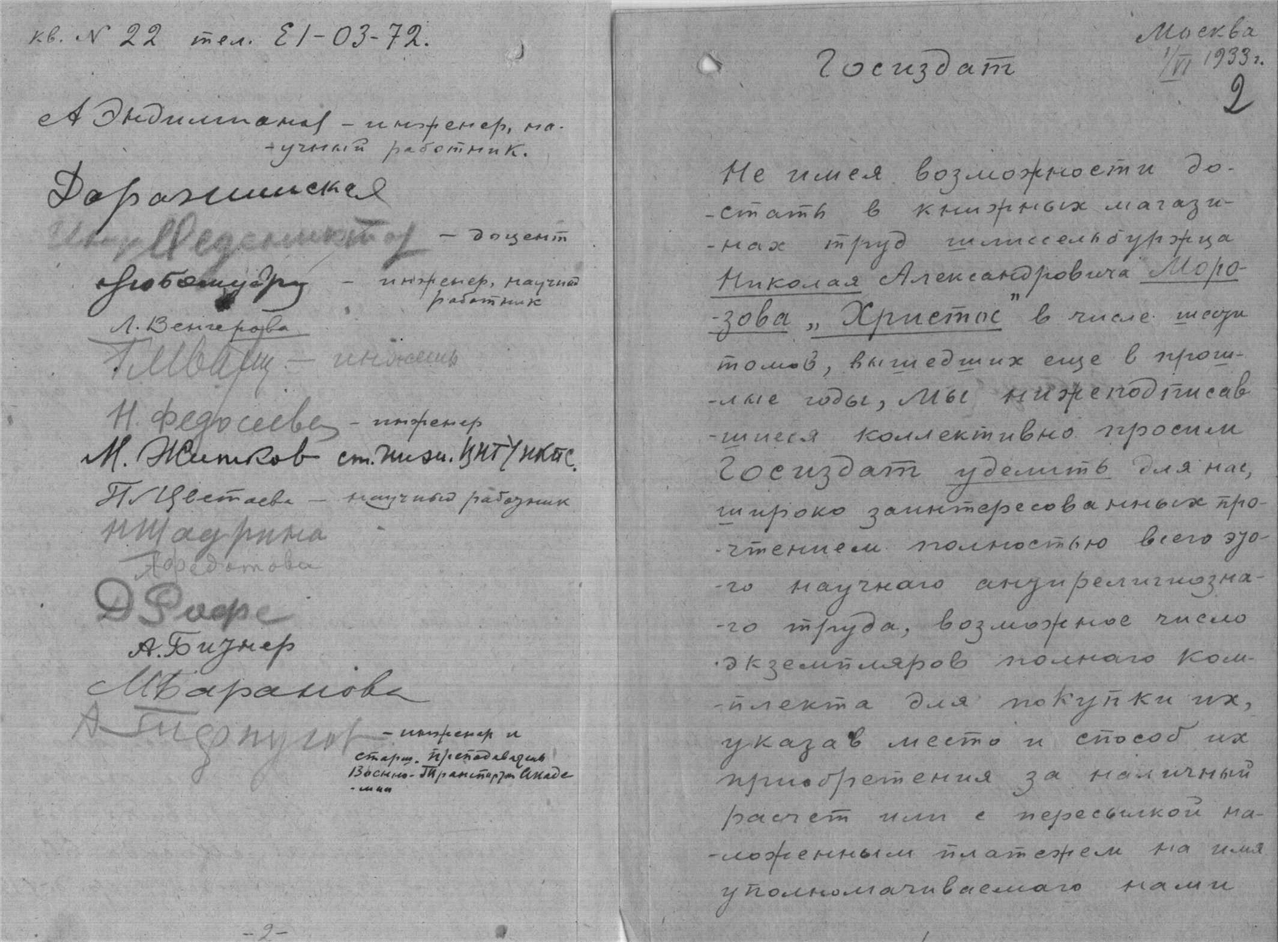 кв. № 22 тел. Е1-03-72.
- инженер, на-
-учный работник.
- доцент
- инженер, научный
работник
Л. Венгерова
Н. Федосеева - инженер
М. Житков ст. инж. ЦНТУ НКТС.
Цветаева - научный работник
Н Шадрина
А Федотова
Д Рофе
А. Бизнер
М Баранова
- инженер и
старш. преподаватель
Военно-Транспортн Акаде
-мии
-2-
Москва
1/VI 1933 г.
Госиздат
2
Не имея возможности до-
-стать в книжных магази-
-нах труд шлиссельбуржца
Николая Александровича Моро-
-зова „Христос" в числе шести
томов, вышедших еще в прош-
-лые годы, мы нижеподписав
-шиеся коллективно просим
Госиздат уделить для нас,
широко заинтересованных про-
-чтением полностью всего это-
-го научнаго антирелигиозна-
-го труда, возможное число
-экземпляров полнаго ком-
-плекта для покупки их,
указав место и способ их
приобретения за наличный
расчет или с пересылкой на-
-ложенным платежем на имя
уполномачиваемаго нами